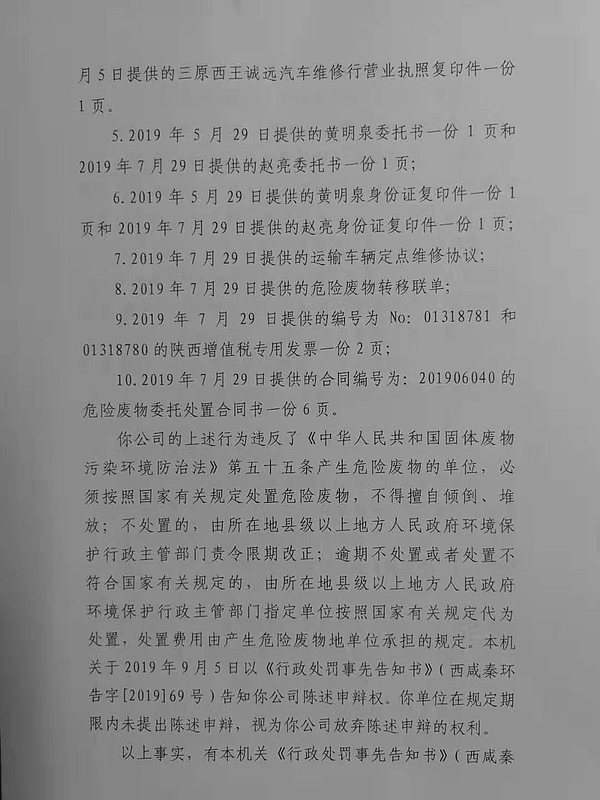 月5日提供的三原西王诚远汽车维修行营业执照复印件一份
1页。
5.2019 年 5 月 29 日提供的黄明泉委托书一份 1 页和
2019年7月29日提供的赵亮委托书一份1页;
6.2019 年 5 月 29 日提供的黄明泉身份证复印件一份 1
页和2019年7月29日提供的赵亮身份证复印件一份1页;
7.2019年7月29日提供的运输车辆定点维修协议;
8.2019年7月29日提供的危险废物转移联单;
9.2019 年 7 月 29 日提供的编号为 No: 01318781 和
01318780的陕西增值税专用发票一份2页;
10.2019年7月29日提供的合同编号为: 201906040的
危险废物委托处置合同书一份6页。
你公司的上述行为违反了《中华人民共和国固体废物
污染环境防治法》第五十五条产生危险废物的单位，必
须按照国家有关规定处置危险废物，不得擅自倾倒、堆
放；不处置的，由所在地县级以上地方人民政府环境保
护行政主管部门责令限期改正；逾期不处置或者处置不
符合国家有关规定的，由所在地县级以上地方人民政府
环境保护行政主管部门指定单位按照国家有关规定代为
处置，处置费用由产生危险废物地单位承担的规定。本机
关于2019年9月5日以《行政处罚事先告知书》(西咸秦环
告字[2019]69号)告知你公司陈述申辩权。你单位在规定期
限内未提出陈述申辩，视为你公司放弃陈述申辩的权利。
以上事实，有本机关《行政处罚事先告知书》(西咸秦